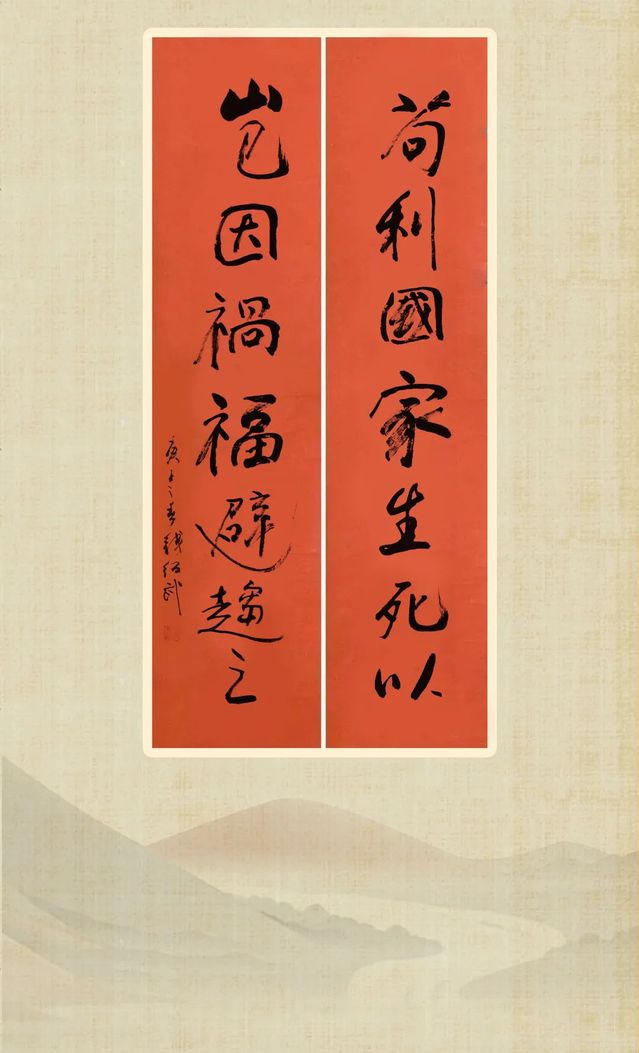 苟利國家生死以
岂因禍福避趨之
庚子之春錢绍武